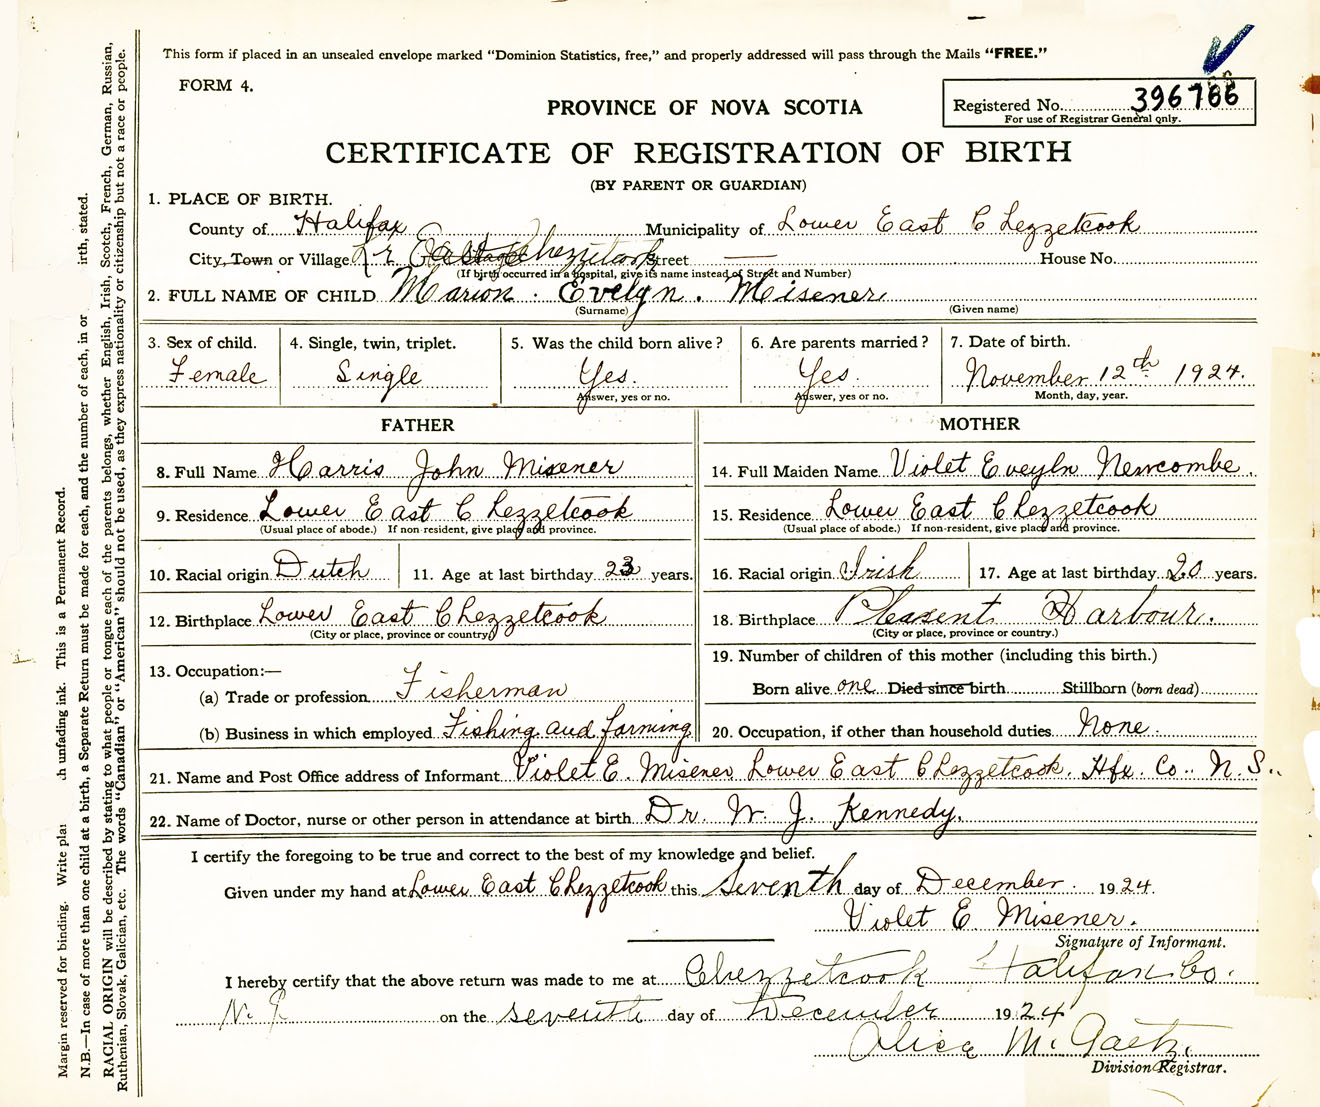 This form if placed in an unsealed envelope marked "Dominion Statistics, free," and properly addressed will pass through the Mails "FREE."
FORM 4.
PROVINCE OF NOVA SCOTIA
Registered No. 396786
For use of Registrar General only.
CERTIFICATE OF REGISTRATION OF BIRTH
(BY PARENT OR GUARDIAN)
1. PLACE OF BIRTH.
County of Halifax Municipality of Lower East Chezzetcook
City, Town or Village Chezzetcook Street — House No.
(If birth occurred in a hospital, give its name instead of Street and Number)
2. FULL NAME OF CHILD Marion. Evelyn. Misener
(Surname) (Given name)
3. Sex of child. 4. Single, twin, triplet. 5. Was the child born alive? 6. Are parents married? 7. Date of birth.
Female Single Yes. Yes. November 12th 1924.
Answer, yes or no. Answer, yes or no. Month, day, year.
FATHER MOTHER
8. Full Name Harris John Misener 14. Full Maiden Name Violet Eveyln Newcombe.
9. Residence Lower East Chezzetcook 15. Residence Lower East Chezzetcook
(Usual place of abode.) If non-resident, give place and province. (Usual place of abode.) If non-resident, give place and province.
10. Racial origin Dutch 11. Age at last birthday 23 years. 16. Racial origin Irish 17. Age at last birthday 20 years.
12. Birthplace Lower East Chezzetcook 18. Birthplace Pleasent Harbour.
(City or place, province or country) (City or place, province or country.)
13. Occupation:— 19. Number of children of this mother (including this birth.)
(a) Trade or profession Fisherman Born alive one Died since birth Stillborn (born dead)
(b) Business in which employed Fishing and farming 20. Occupation, if other than household duties None.
21. Name and Post Office address of Informant Violet E. Misener Lower East Chezzetcook. Hfx. Co.. N.S..
22. Name of Doctor, nurse or other person in attendance at birth Dr. W. J. Kennedy.
I certify the foregoing to be true and correct to the best of my knowledge and belief.
Given under my hand at Lower East Chezzetcook this Seventh day of December. 1924.
Violet E. Misener.
Signature of Informant.
I hereby certify that the above return was made to me at Chezzetcook Halifax Co.
N. S on the seventh day of December 1924
Alice M. Gaetz.
Division Registrar.
Margin reserved for binding. Write pla th unfading ink. This is a Permanent Record.
N.B.—In case of more than one child at a birth, a Separate Return must be made for each, and the number of each, in or irth, stated.
RACIAL ORIGIN will be described by stating to what people or tongue each of the parents belongs, whether English, Irish, Scotch, French, German, Russian,
Ruthenian, Slovak, Galician, etc. The words "Canadian" or "American" should not be used, as they express nationality or citizenship but not a race or people.